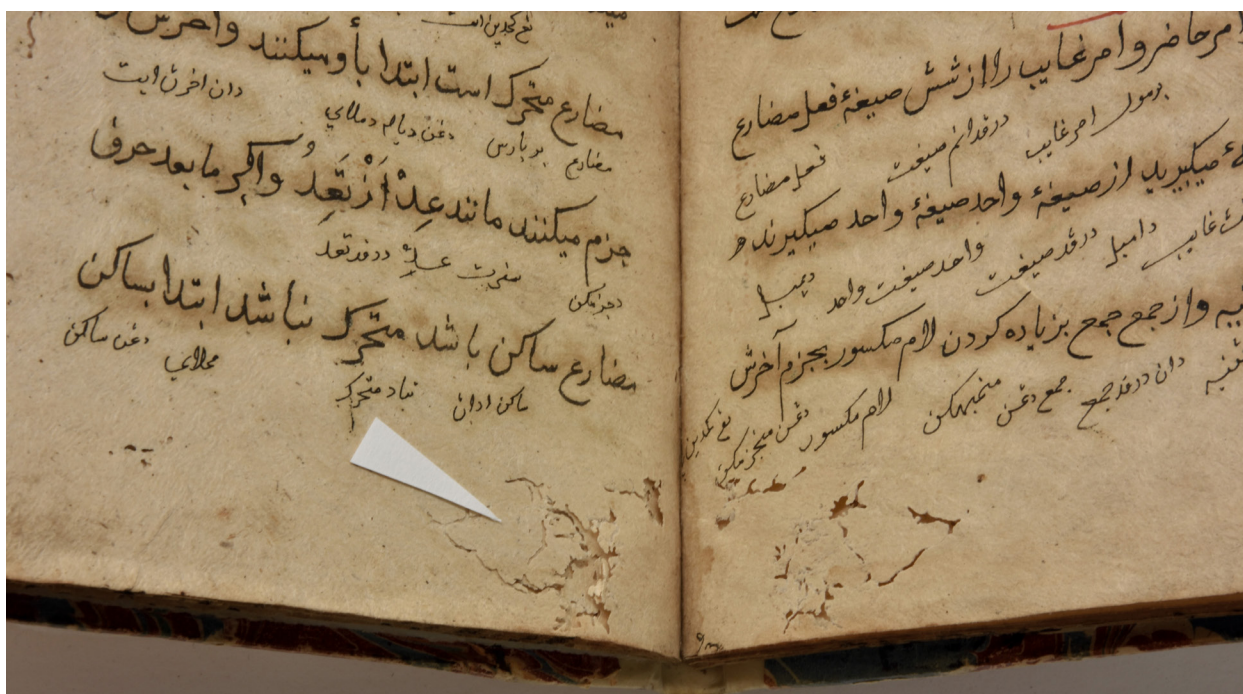 امر حاضر و امر غایب را از شش صیغهٔ فعل مضارع
برمول امر غایب درفدانم صیغت فعل مضارع
میگیرند از صیغهٔ واحد صیغهٔ واحد میگیرند
غایب دامبل درفد صیغت واحد صیغت واحد دیمبل
و از جمع جمع بزیاده کردن لام مکسور بجزم آخرش
تثنیه دان درفد جمع جمع دغن منمبهکن لام مکسور دغن منجزمکن
مضارع متحرک است ابتدا بأو میکنند و آخرش
مضارع بربارس دغن دیاله دملائی دان اخرث ایت
جزم میکنند مانند عِدْ اَزْ تَعِدُ و اگر ما بعد حرف
دجزمکن سفرت عِدْ درفد تعد
مضارع ساکن باشد متحرک نباشد ابتدا بساکن
ساکن ادان تیاد متحرک ملائی دغن ساکن